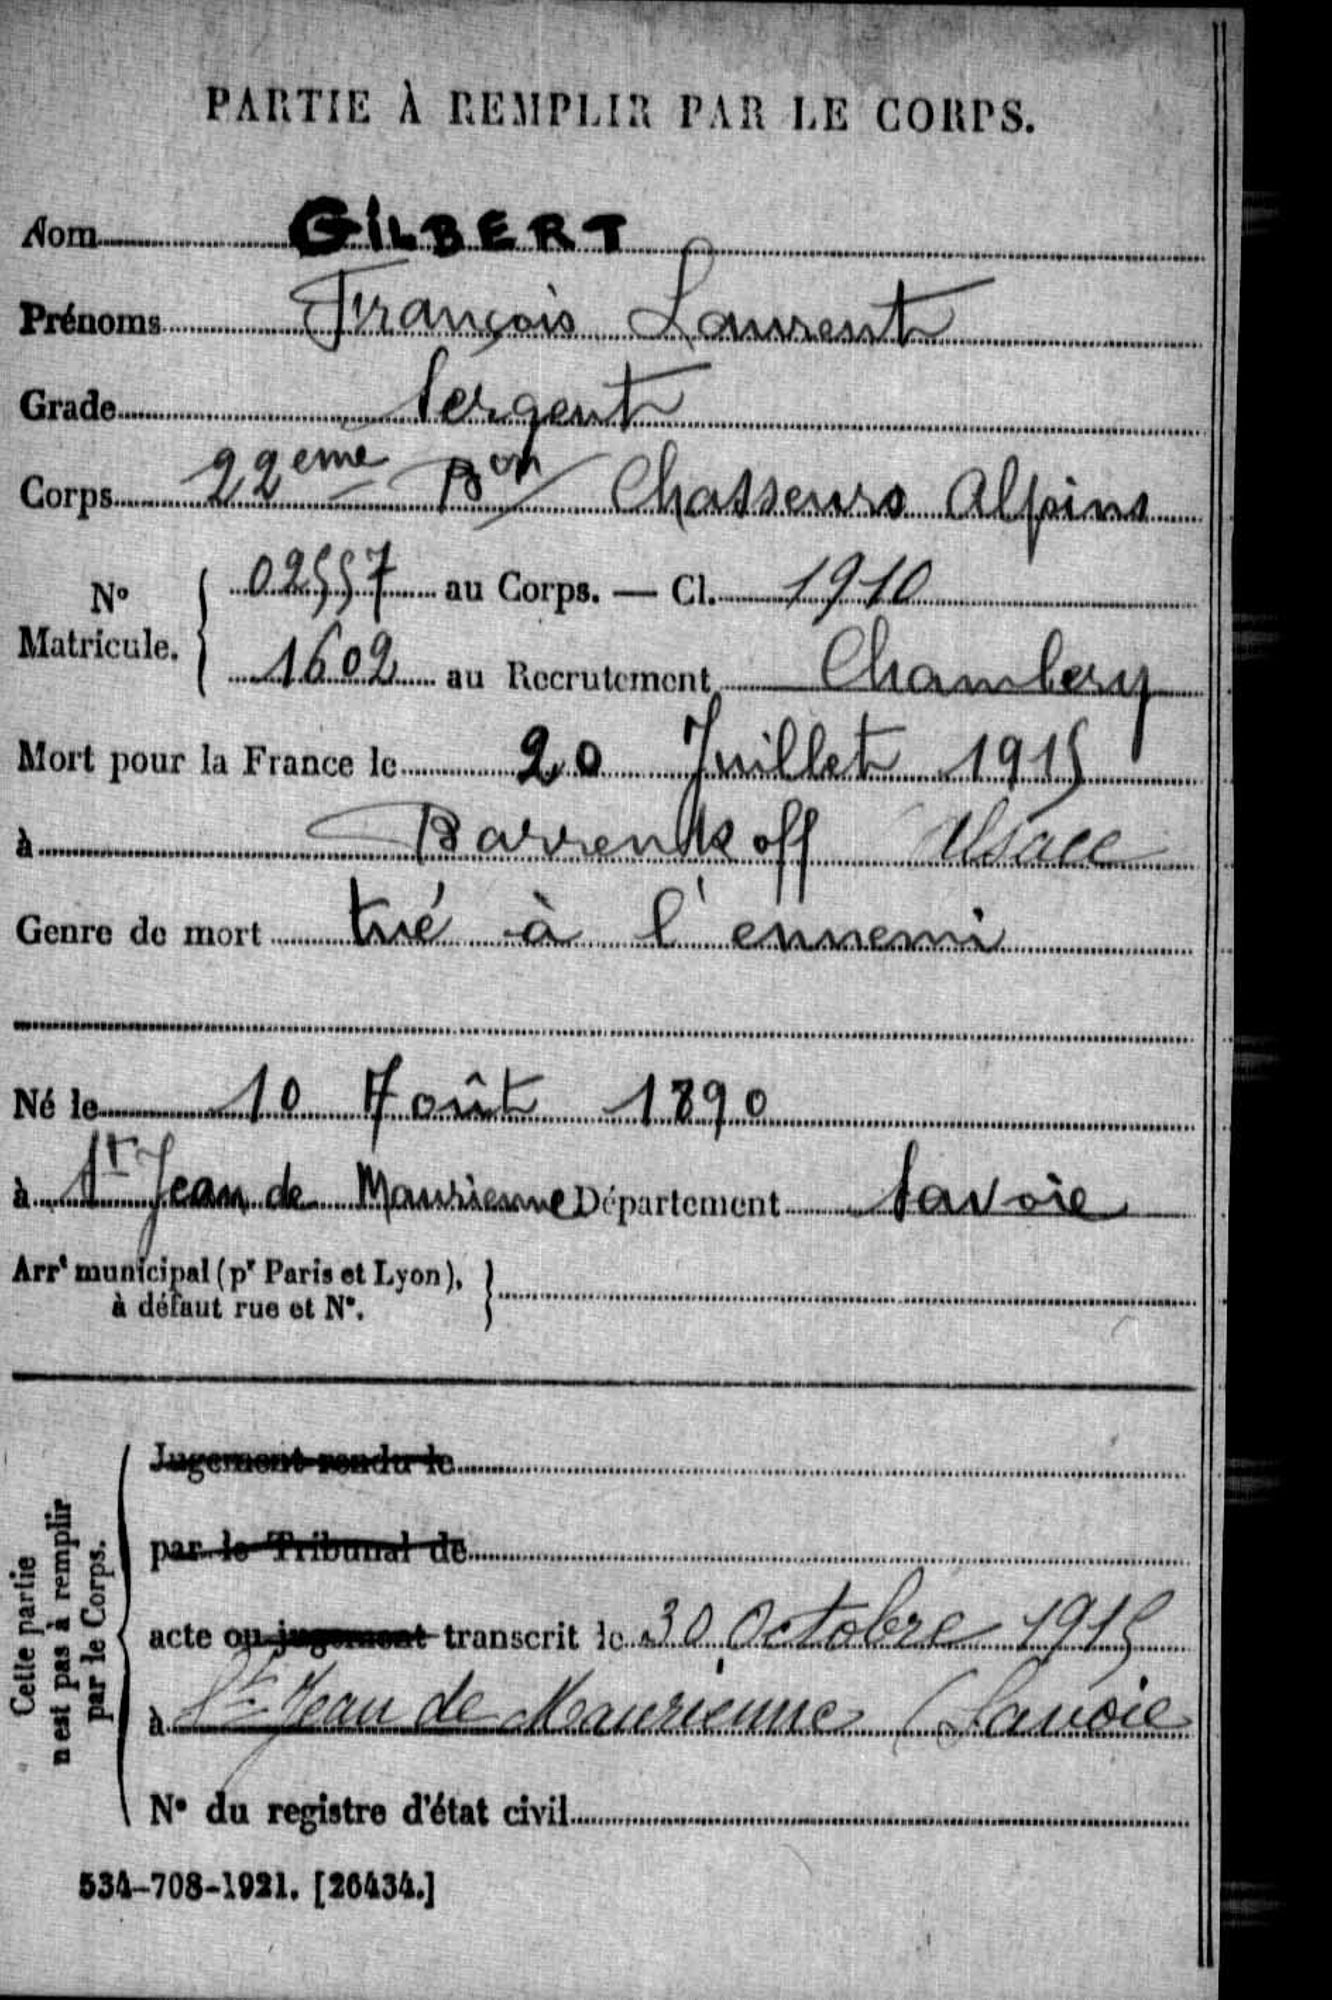 PARTIE À REMPLIR PAR LE CORPS.
Nom GILBERT
Prénoms François Laurent
Grade Sergent
Corps 22eme Bon Chasseurs Alpins
N° Matricule. { 02557 au Corps. — Cl. 1910
1602 au Recrutement Chambery
Mort pour la France le 20 Juillet 1915
à Barrenkoff Alsace
Genre de mort tué à l'ennemi
Né le 10 Août 1890
à St Jean de Maurienne Département Savoie
Arrt municipal (pr Paris et Lyon),
à défaut rue et N°.
Cette partie
n'est pas à remplir
par le Corps.
Jugement rendu le
par le Tribunal de
acte ou jugement transcrit le 30 Octobre 1915
à St Jean de Maurienne (Savoie
N° du registre d'état civil
534-708-1921. [26434.]